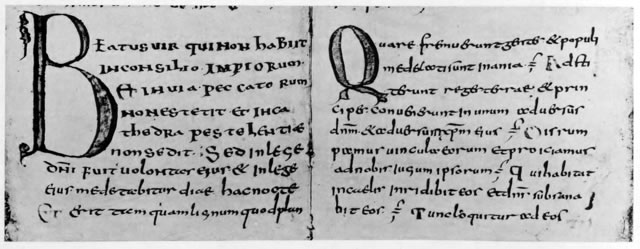 BEATUS VIR QUI NON HABIIT
IN CONSILIO IMPIORUM
ET IN UIA PECCATORUM
NON ESTETIT ET IN CA
THEDRA PESTELENTIAE
NON SEDIT : SED IN LEGE
DNI FUIT UOLONTAS EIUS & IN LEGE
EIUS MEDETABITUR DIAE HAC NOCTE
Et erit tam quam lignum quod plan
Quare fremuerunt gentes & populi
medetati sunt inania Adsti
terunt reges terrae & prin
cipes conuenerunt in unum aduersus
dnm & aduersus xpm eius Disrum
pamus uincula eorum et proiciamus
ad nobis iugum ipsorum Qui habitat
in caelis inridibit eos et dns subsanna
bit eos Tunc loquitur ad eos